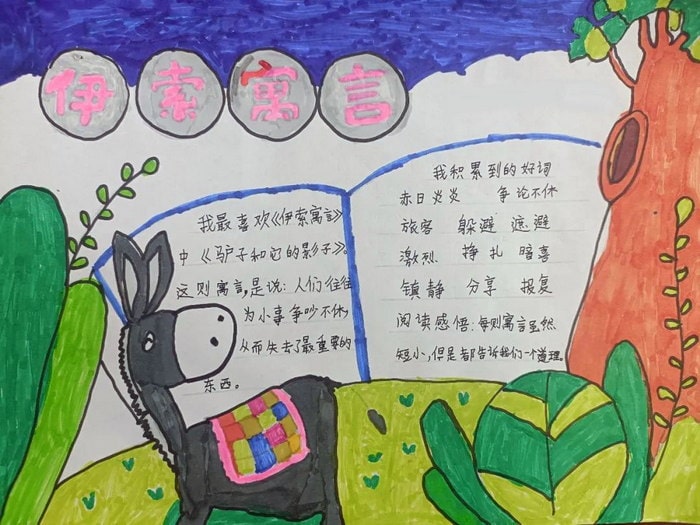 伊索寓言
我最喜欢《伊索寓言》
中《驴子和它的影子》。
这则寓言,是说:人们往往
为小事争吵不休,
从而失去了最重要的
东西。
我积累到的好词
赤日炎炎 争论不休
旅客 躲避 遮避
激烈 挣扎 暗喜
镇静 分享 报复
阅读感悟:每则寓言虽然
短小,但是都告诉我们一个道理。